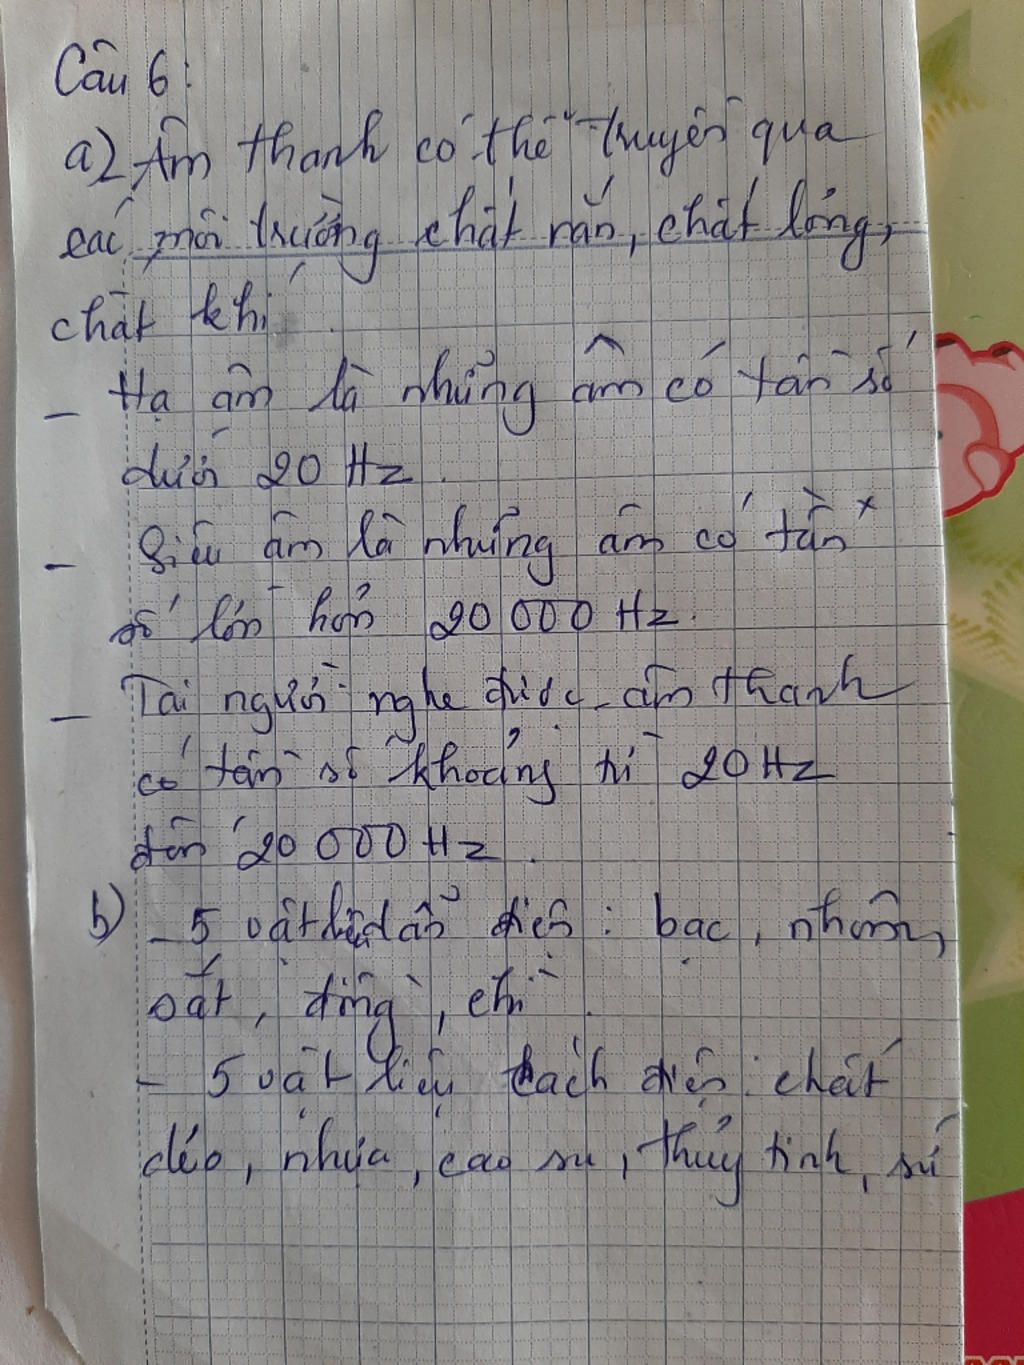 Câu 6:
a) Âm thanh có thể truyền qua
các môi trường chất rắn, chất lỏng,
chất khí.
- Hạ âm là những âm có tần số
dưới 20 Hz.
- Siêu âm là những âm có tần
số lớn hơn 20 000 Hz.
- Tai người nghe được âm thanh
có tần số khoảng từ 20 Hz
đến 20 000 Hz.
b) - 5 vật liệu dẫn điện: bạc, nhôm,
sắt, đồng, chì.
- 5 vật liệu cách điện: chất
dẻo, nhựa, cao su, thủy tinh, sứ